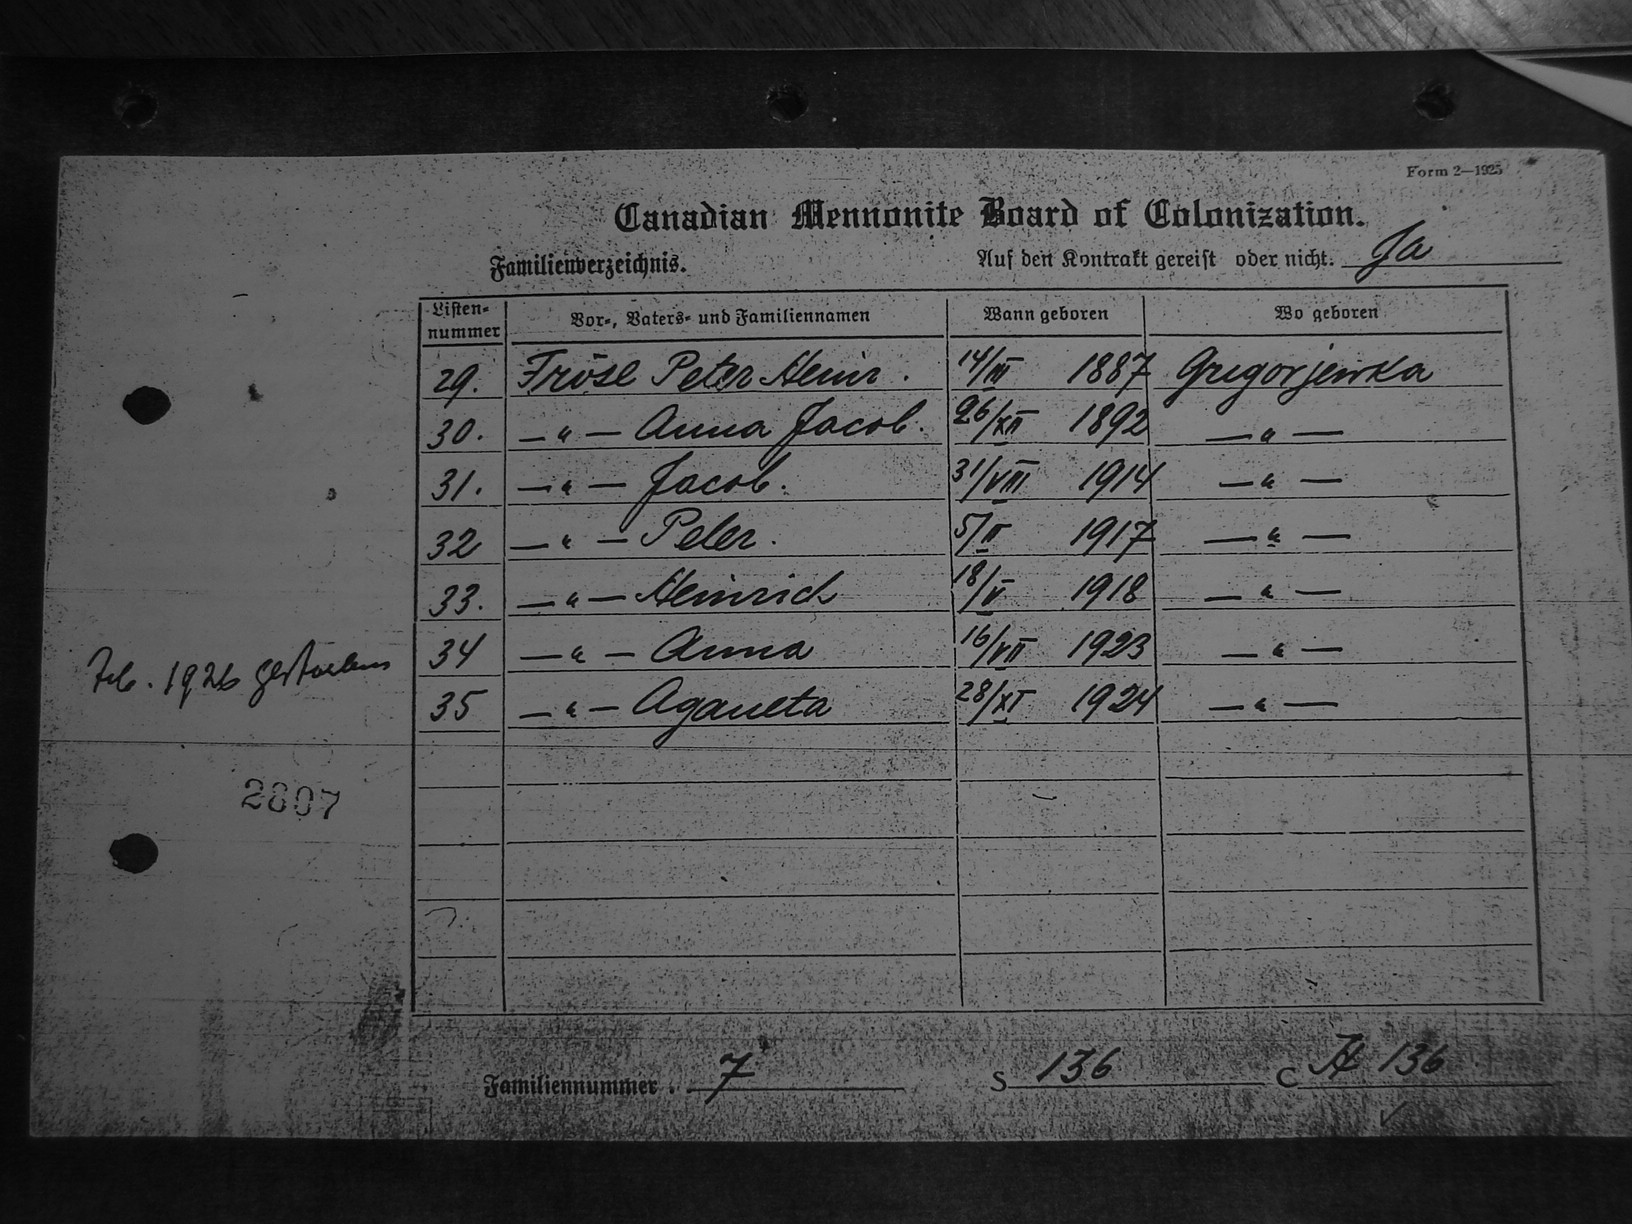 Form 2—1925
Canadian Mennonite Board of Colonization.
Familienverzeichnis. Auf den Kontrakt gereist oder nicht. Ja
Listen-nummer Vor-, Vaters- und Familiennamen Wann geboren Wo geboren
29. Frösе Peter Heinr. 14/III 1887 Gregorjewka
30. —"— Anna Jacob. 26/XII 1892 —"—
31. —"— Jacob. 31/VIII 1914 —"—
32 —"— Peter. 5/II 1917 —"—
33. —"— Heinrich 18/V 1918 —"—
34 —"— Anna 16/VII 1923 —"—
Feb. 1926 gestorben
35 —"— Aganeta 28/XI 1924 —"—
2807
Familiennummer. 7 S 136 C A 136